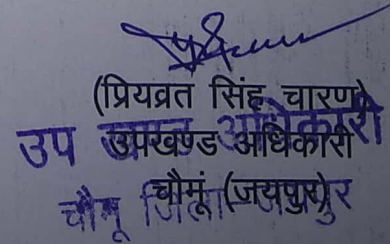 (प्रियव्रत सिंह चारण)
उपखण्ड अधिकारी
चौमूं (जयपुर)
उप खण्ड अधिकारी
चौमू जिला जयपुर